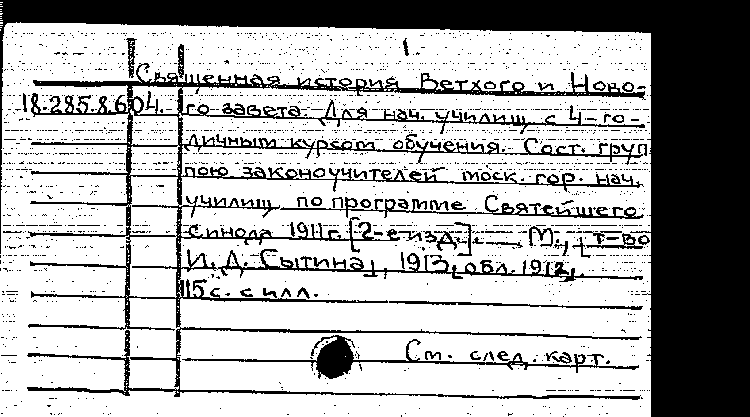 1.
Священная история Ветхого и Ново-
18.285.8.604. го завета. Для нач. училищ с 4-го-
дичным курсом обучения. Сост. груп
пою законоучителей моск. гор. нач.
училищ по программе Святейшего
синода 1911г. [2-е изд.]. — М., [т-во
И. Д. Сытина], 1913, [обл. 1912].
115 с. с илл.
См. след. карт.